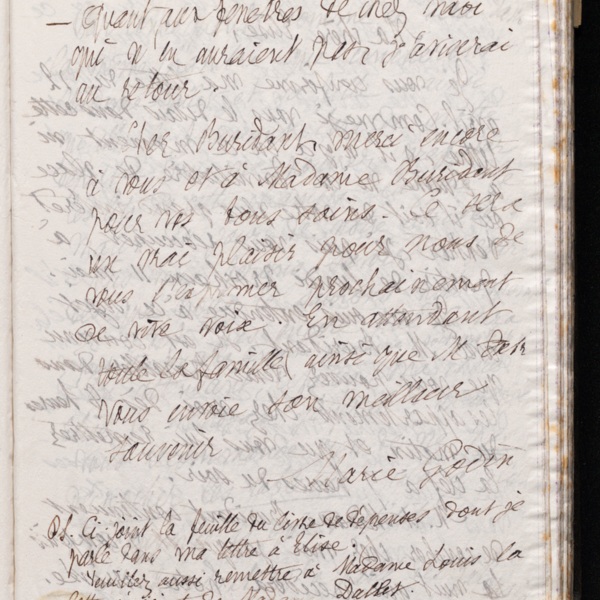 — Quant aux fenêtres de chez moi
qui n'en auraient pas, j'aviserai
au retour.
Cher Buridant, merci encore
à vous et à Madame Buridant
pour vos bons soins. Ce sera
un vrai plaisir pour nous de
vous l'exprimer prochainement
de vive voix. En attendant
toute la famille, ainsi que M.
vous envoie son meilleur
souvenir
Marie Godin
PS. Ci-joint la feuille du livre de dépenses dont je
parle dans ma lettre à Elise.
Veuillez aussi remettre à Madame Louis la
Dallet.